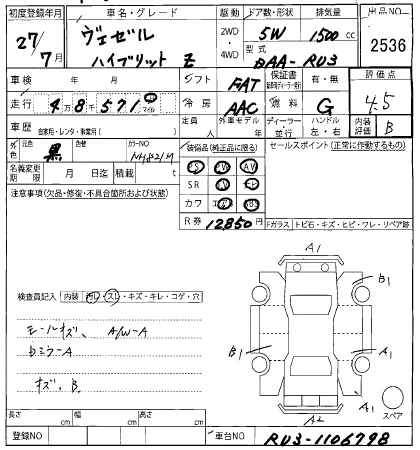 初度登録年月 車名・グレード 駆動 ドア数・形状 排気量 出品NO
27/7月 ヴェゼル ハイブリット Z 2WD・4WD 5W 1500cc 2536
型式 DAA-RU3
車検 年 月 シフト FAT 保証書 有・無 評価点 4.5
走行 4万8千571 マイル 冷房 AAC 燃料 G
車歴 自家用・レンタ・事業用( ) 定員 人 外車モデル 年 ディーラー・並行 ハンドル 左・右 内装評価 B
外色 元色 黒 色替 カラーNO NH821M 装備品(純正品に限る) セールスポイント(正常に作動するもの)
名義変更期限 月 日迄 積載 t PS PW AV
SR
カワ エアB
注意事項(欠品・修復・不具合箇所および状態)
R券 12850円 Fガラス トビ石・キズ・ヒビ・ワレ・リペア跡
A1
B1
検査員記入 内装 汚レ・スレ・キズ・キレ・コゲ・穴
モールキズ、 A/W-A
B1 A1
キズ、B
A1
A2
スペア
長さ cm 幅 cm 高さ cm
登録NO 車台NO RU3-1106798